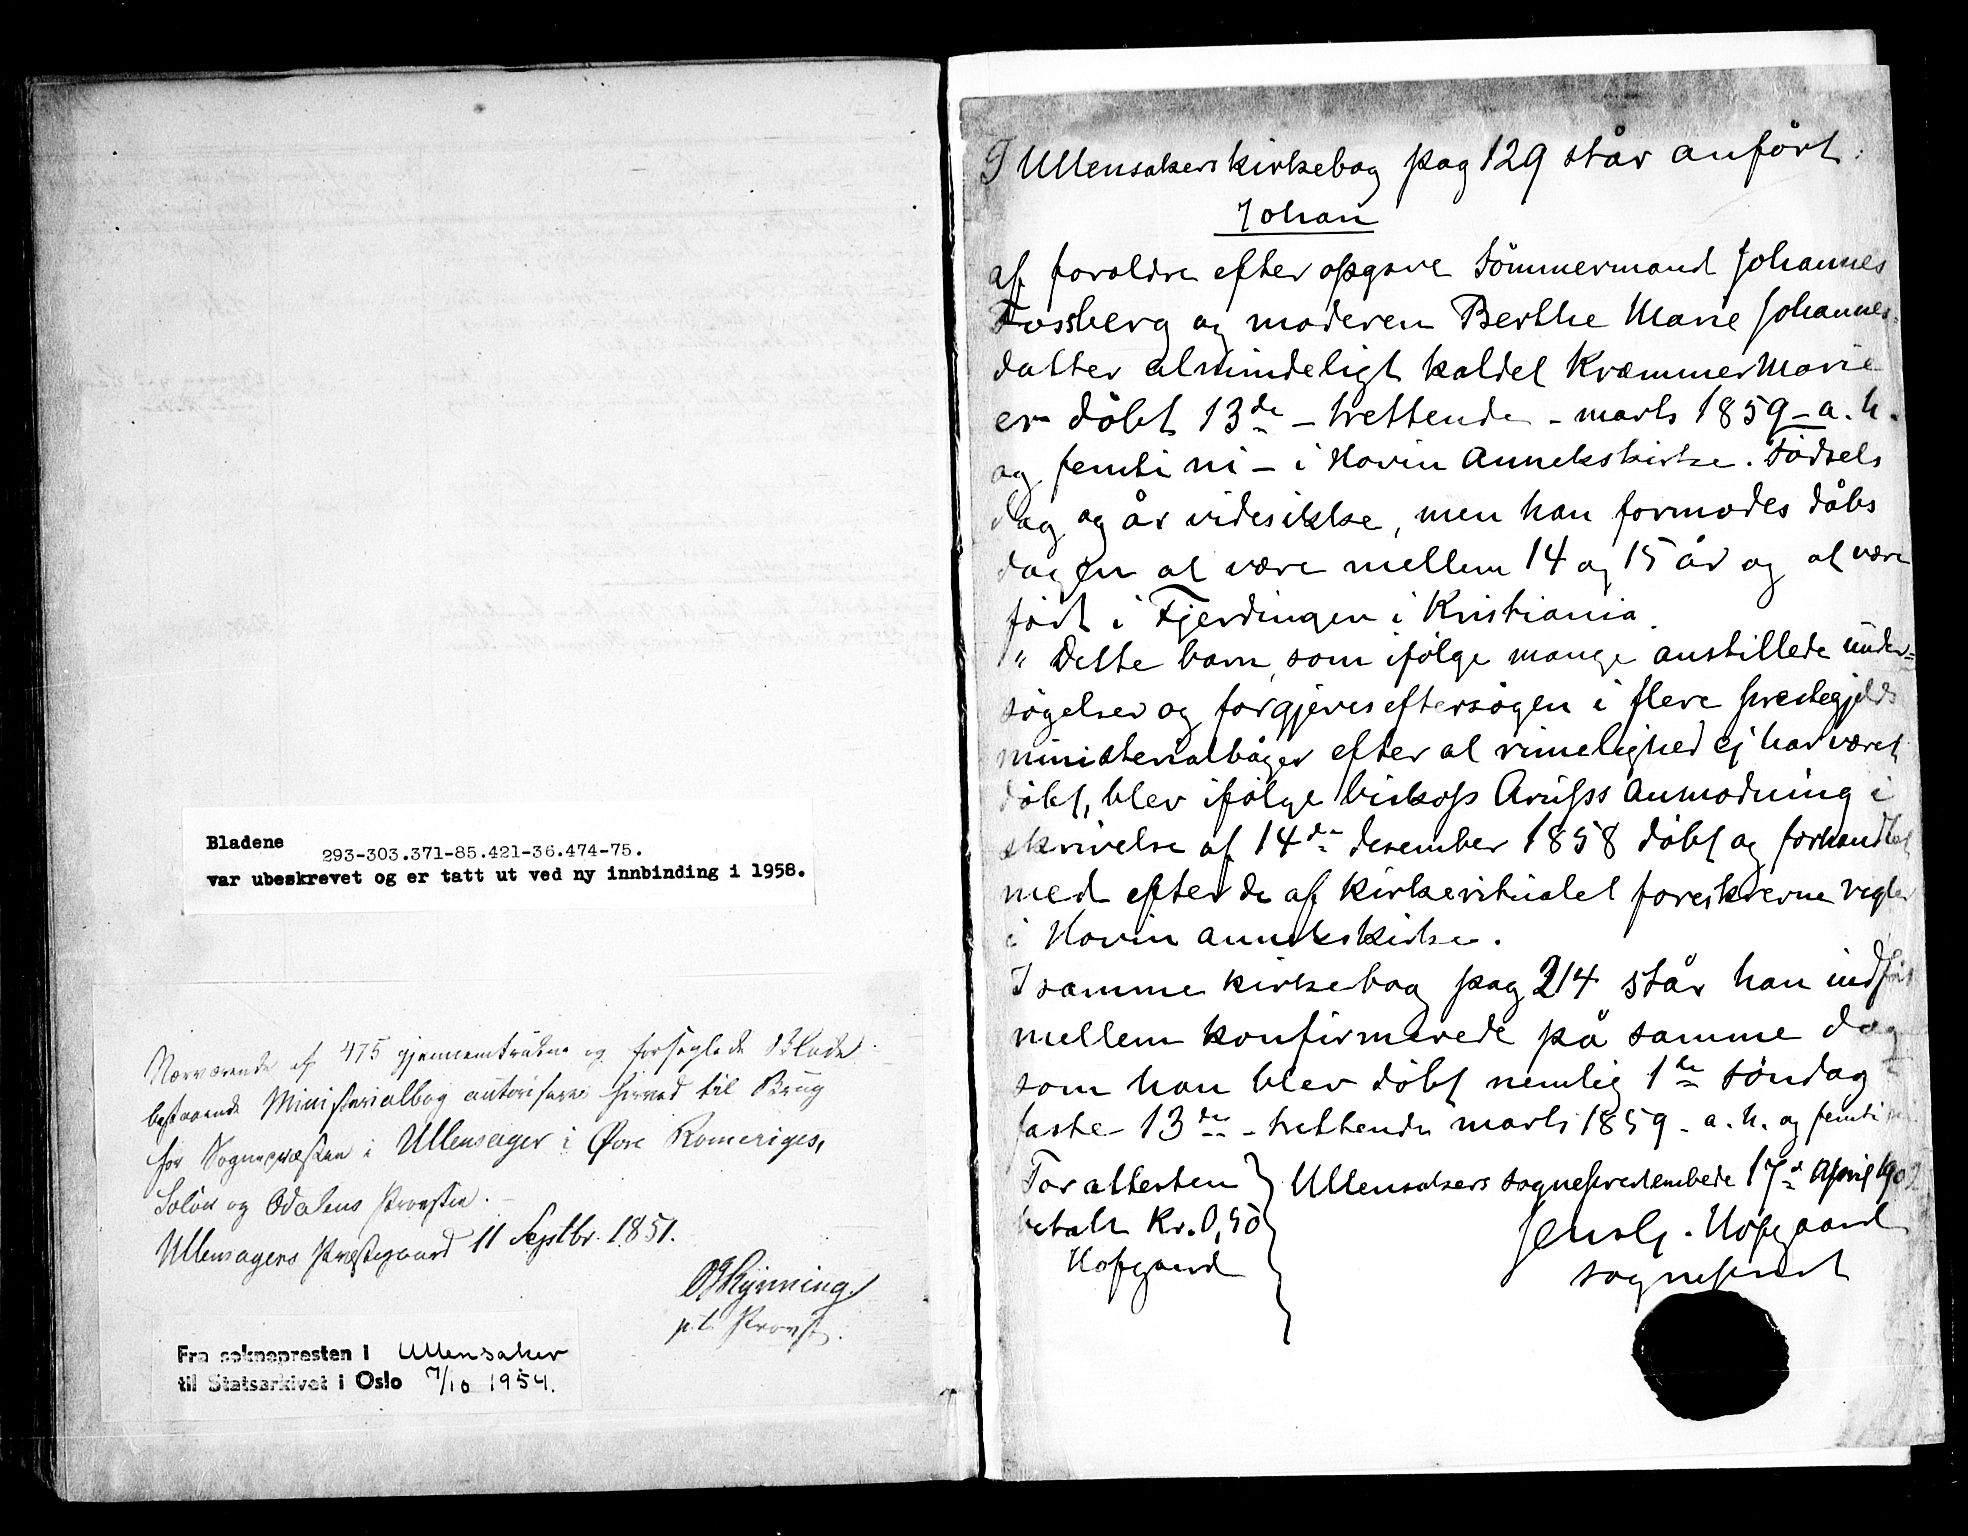 Bladene
293-303.371-85.421-36.474-75.
var ubeskrevet og er tatt ut ved ny innbinding i 1958.
Nærværende af 475 gjennemtrukne og forseglede Blade
bestaaende Ministerialbog autoriseres herved til Brug
for Sognepræsten i Ullensager i Øvre Romeriges,
Solør og Odalens Provstie.
Ullensagers Præstegaard 11 Septbr. 1851.
p.t. Provst.
Fra soknepresten i Ullensaker
til Statsarkivet i Oslo 7/10 1954.
I Ullensakers kirkebog pag 129 står anført:
Johan
af forældre efter opgave Tømmermand Johannes
Fossberg og moderen Berthe Marie Johannes-
datter almindeligt kaldet Kræmmer Marie
er døbt 13de - trettende - marts 1859 - a. h.
og femti ni - i Hovin Annekskirke. Fødsels
dag og år vides ikke, men han formodes dåbs
dagen at være mellem 14 og 15 år og at være
født i Fjerdingen i Kristiania.
" Dette barn, som ifølge mange anstillede under=
søgelser og forgjeves eftersøgen i flere prestegjelds
ministerialbøger efter al rimelighed ej har været
døbt, blev ifølge biskop Arups Anmodning i
skrivelse af 14de desember 1858 døbt og forhandlet
med efter de af kirkeritualet foreskrevne regler
i Hovin annekskirke.
I samme kirkebog pag 214 står han indført
mellem konfirmerede på samme dag
som han blev døbt nemlig 1ste søndag i
faste 13de - trettende marts 1859 - a. h. og femti ni
For attesten } Ullensakers sogneprestembede 17de April 1902
betalt Kr. 0,50
Jens G. Hofgaard
Hofgaard
sogneprest